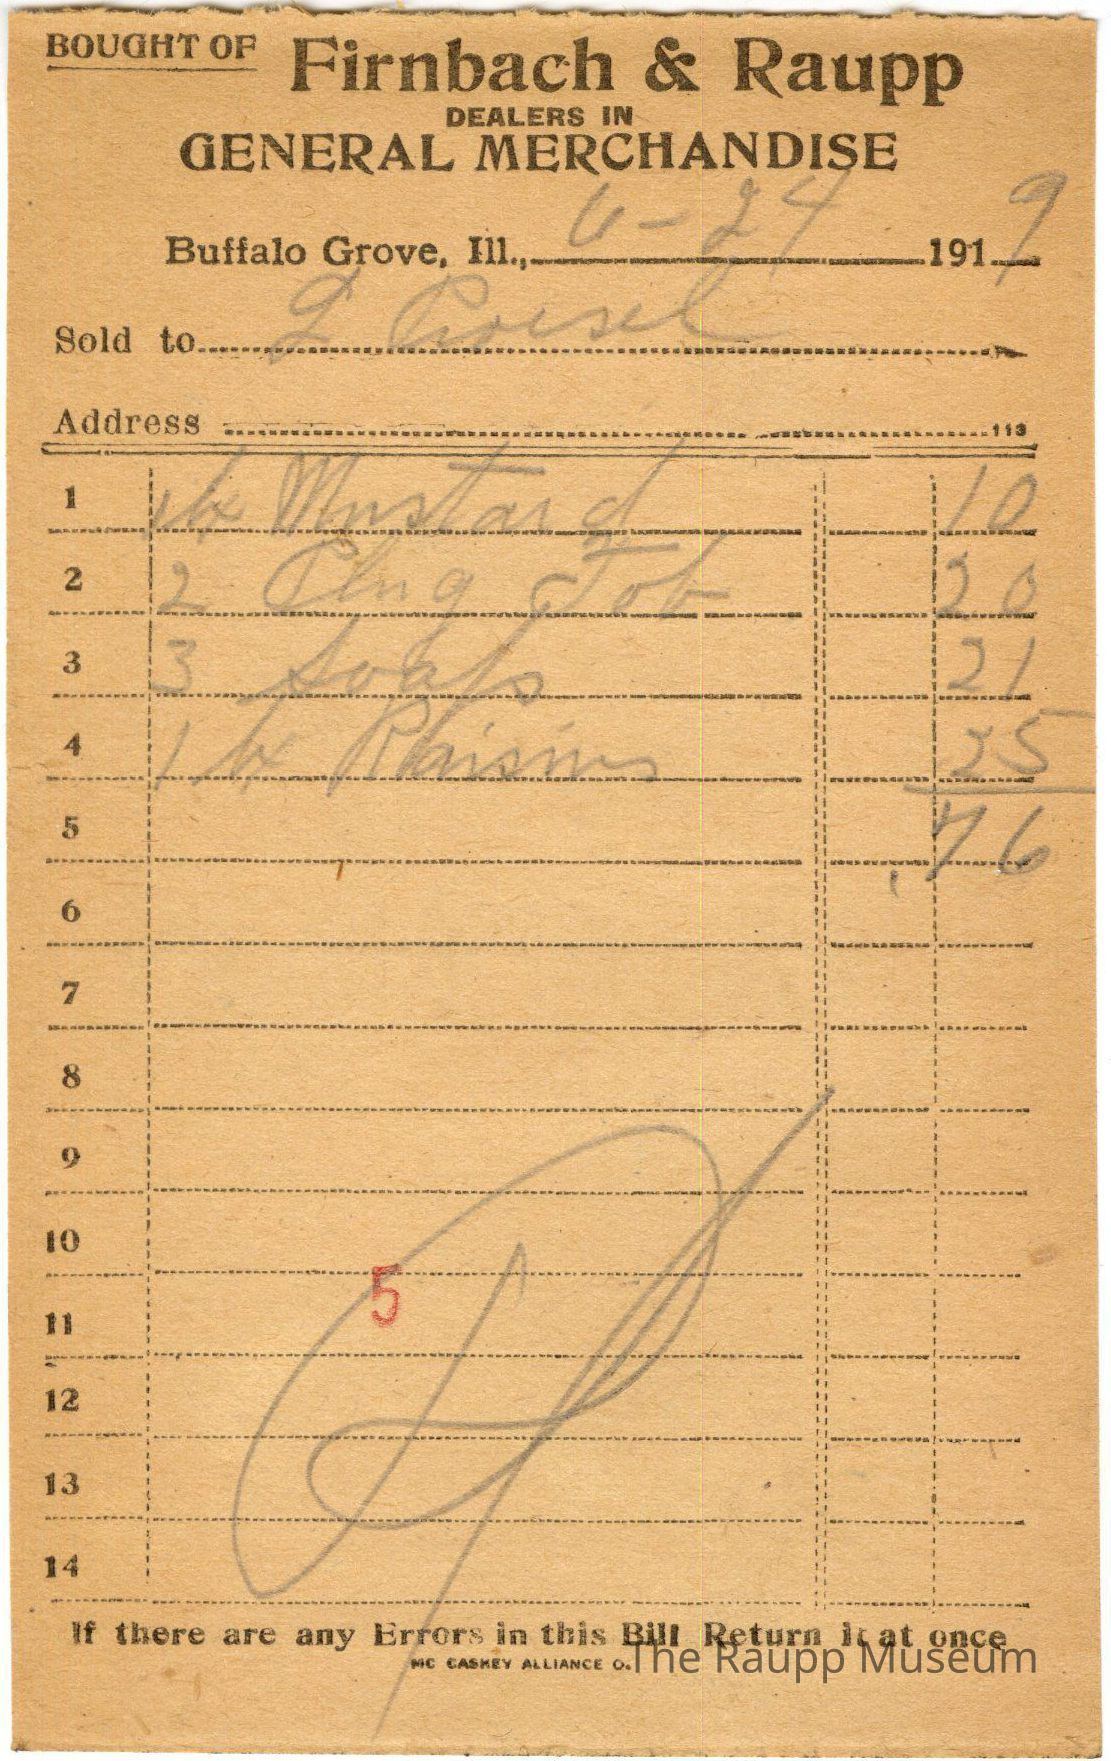 BOUGHT OF Firnbach & Raupp
DEALERS IN
GENERAL MERCHANDISE
Buffalo Grove, Ill., 6-24 1919
Sold to
Address 113
1 Mustard 10
2 2 Plug Tob 20
3 3 Soaps 21
4 1 bx Raisins 25
5 .76
6
7
8
9
10
5
11
12
13
14
If there are any Errors in this Bill Return It at once
MC CASKEY ALLIANCE O.
The Raupp Museum